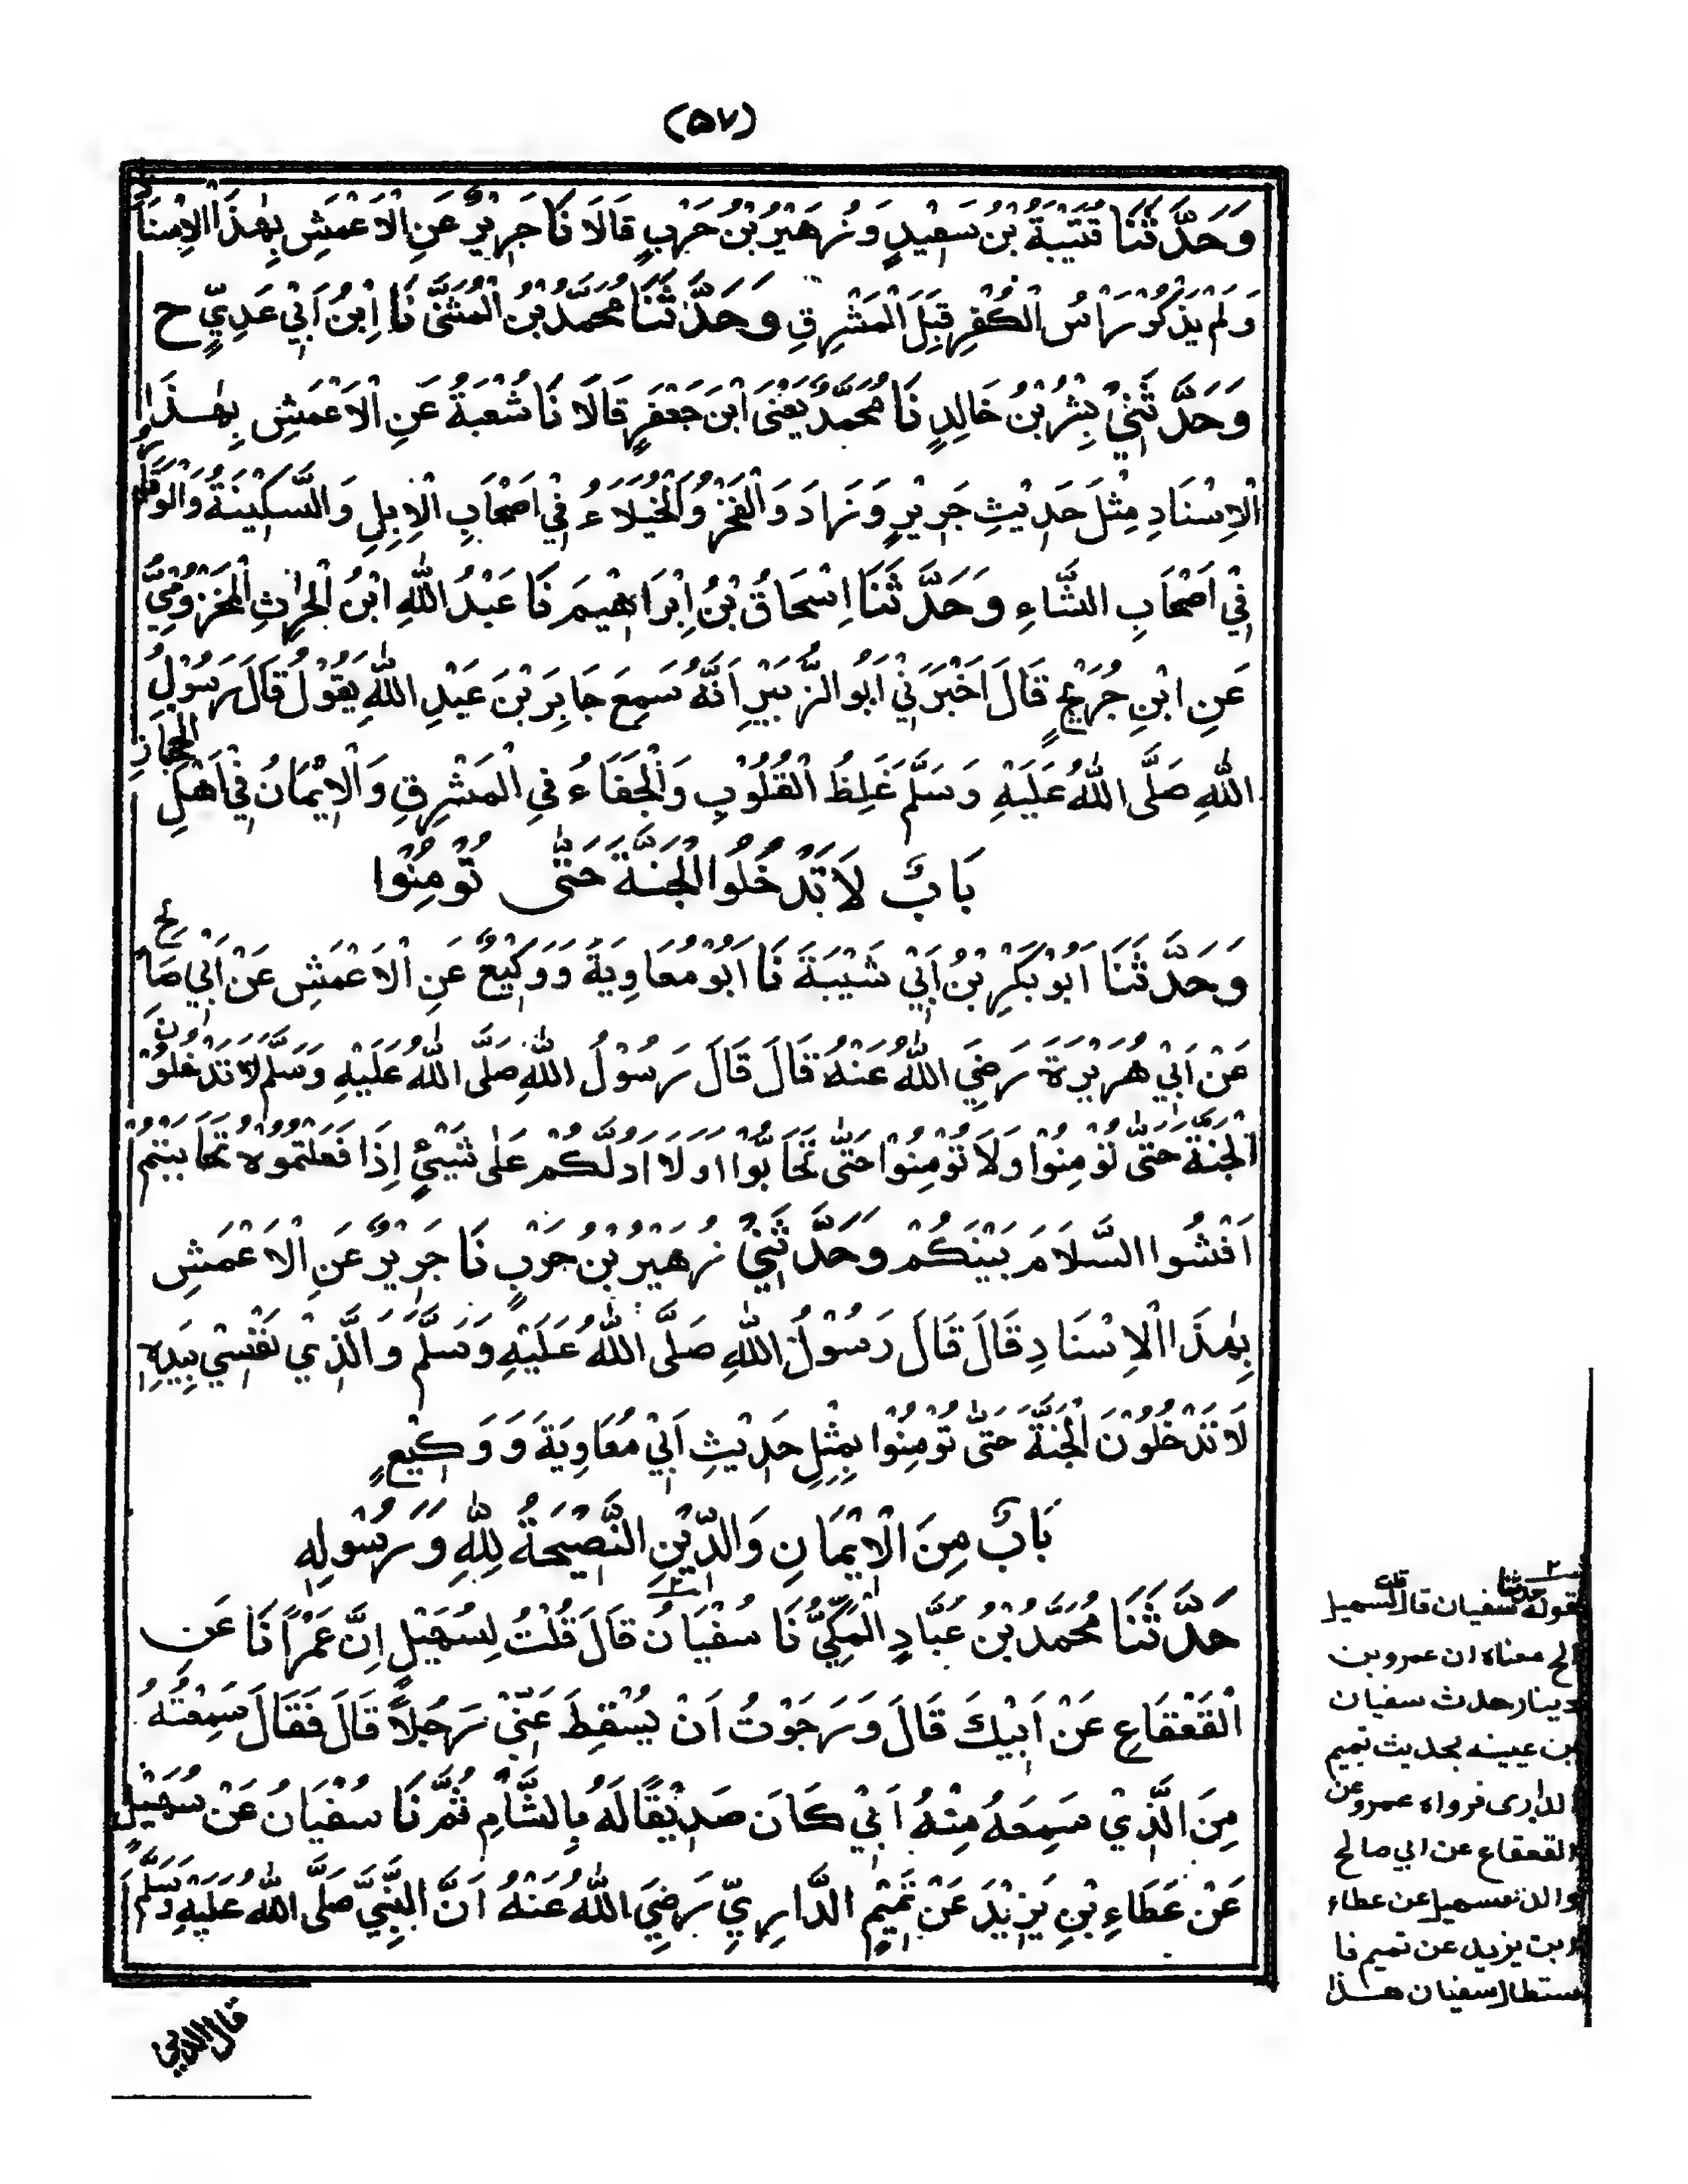 (۵۷)
وَحَدَّثَنَا قُتَيْبَةُ بْنُ سَعِيْدٍ وَزُهَيْرُ بْنُ حَرْبٍ قَالَا نَا جَرِيْرٌ عَنِ الْاَعْمَشِ بِهٰذَا الْاِسْنَادِ
وَلَمْ يَذْكُرْ رَأْسُ الْكُفْرِ قِبَلَ الْمَشْرِقِ وَحَدَّثَنَا مُحَمَّدُ بْنُ الْمُثَنّٰى نَا اِبْنُ اَبِيْ عَدِيٍّ ح
وَحَدَّثَنِيْ بِشْرُ بْنُ خَالِدٍ نَا مُحَمَّدٌ يَعْنِى ابْنَ جَعْفَرٍ قَالَا نَا شُعْبَةُ عَنِ الْاَعْمَشِ بِهٰذَا
الْاِسْنَادِ مِثْلَ حَدِيْثِ جَرِيْرٍ وَزَادَ وَالْفَخْرُ وَالْخُيَلَاءُ فِيْ اَصْحَابِ الْاِبِلِ وَالسَّكِيْنَةُ وَالْوَقَارُ
فِيْ اَصْحَابِ الشَّاءِ وَحَدَّثَنَا اِسْحَاقُ بْنُ اِبْرَاهِيْمَ نَا عَبْدُ اللهِ ابْنُ الْحٰرِثِ الْمَخْزُوْمِيُّ
عَنِ ابْنِ جُرَيْجٍ قَالَ اَخْبَرَنِيْ اَبُو الزُّبَيْرِ اَنَّهٗ سَمِعَ جَابِرَ بْنَ عَبْدِ اللهِ يَقُوْلُ قَالَ رَسُوْلُ
اللهِ صَلَّى اللهُ عَلَيْهِ وَسَلَّمَ غِلَظُ الْقُلُوْبِ وَالْجَفَاءُ فِي الْمَشْرِقِ وَالْاِيْمَانُ فِيْ اَهْلِ الْحِجَازِ
بَابٌ لَا تَدْخُلُوا الْجَنَّةَ حَتّٰى تُؤْمِنُوْا
وَحَدَّثَنَا اَبُوْ بَكْرِ بْنُ اَبِيْ شَيْبَةَ نَا اَبُوْ مُعَاوِيَةَ وَوَكِيْعٌ عَنِ الْاَعْمَشِ عَنْ اَبِيْ صَالِحٍ
عَنْ اَبِيْ هُرَيْرَةَ رَضِيَ اللهُ عَنْهُ قَالَ قَالَ رَسُوْلُ اللهِ صَلَّى اللهُ عَلَيْهِ وَسَلَّمَ لَا تَدْخُلُوْنَ
الْجَنَّةَ حَتّٰى تُؤْمِنُوْا وَلَا تُؤْمِنُوْا حَتّٰى تَحَابُّوْا اَوَلَا اَدُلُّكُمْ عَلٰى شَيْئٍ اِذَا فَعَلْتُمُوْهُ تَحَابَبْتُمْ
اَفْشُوا السَّلَامَ بَيْنَكُمْ وَحَدَّثَنِيْ زُهَيْرُ بْنُ حَرْبٍ نَا جَرِيْرٌ عَنِ الْاَعْمَشِ
بِهٰذَا الْاِسْنَادِ قَالَ قَالَ رَسُوْلُ اللهِ صَلَّى اللهُ عَلَيْهِ وَسَلَّمَ وَالَّذِيْ نَفْسِيْ بِيَدِهٖ
لَا تَدْخُلُوْنَ الْجَنَّةَ حَتّٰى تُؤْمِنُوْا بِمِثْلِ حَدِيْثِ اَبِيْ مُعَاوِيَةَ وَوَكِيْعٍ
بَابٌ مِنَ الْاِيْمَانِ وَالدِّيْنِ النَّصِيْحَةُ لِلّٰهِ وَرَسُوْلِهٖ
حَدَّثَنَا مُحَمَّدُ بْنُ عَبَّادٍ الْمَكِّيُّ نَا سُفْيَانُ قَالَ قُلْتُ لِسُهَيْلٍ اِنَّ عَمْرًا نَا عَنِ
الْقَعْقَاعِ عَنْ اَبِيْكَ قَالَ وَرَجَوْتُ اَنْ يُسْقِطَ عَنِّيْ رَجُلًا قَالَ فَقَالَ سَمِعْتُهُ
مِنَ الَّذِيْ سَمِعَهُ مِنْهُ اَبِيْ كَانَ صَدِيْقًا لَهٗ بِالشَّامِ ثُمَّ نَا سُفْيَانُ عَنْ سُهَيْلٍ
عَنْ عَطَاءِ بْنِ يَزِيْدَ عَنْ تَمِيْمِ الدَّارِيِّ رَضِيَ اللهُ عَنْهُ اَنَّ النَّبِيَّ صَلَّى اللهُ عَلَيْهِ وَسَلَّمَ
قال الدين
۲
قوله حدثنا سفيان قال قلت لسهيل
الخ معناه ان عمرو بن
دينار حدث سفيان
بن عيينه بحديث تميم
الدارى فرواه عمرو عن
القعقاع عن ابي صالح
والد سهيل عن عطاء
بن يزيد عن تميم فا
ستطال سفيان هذا